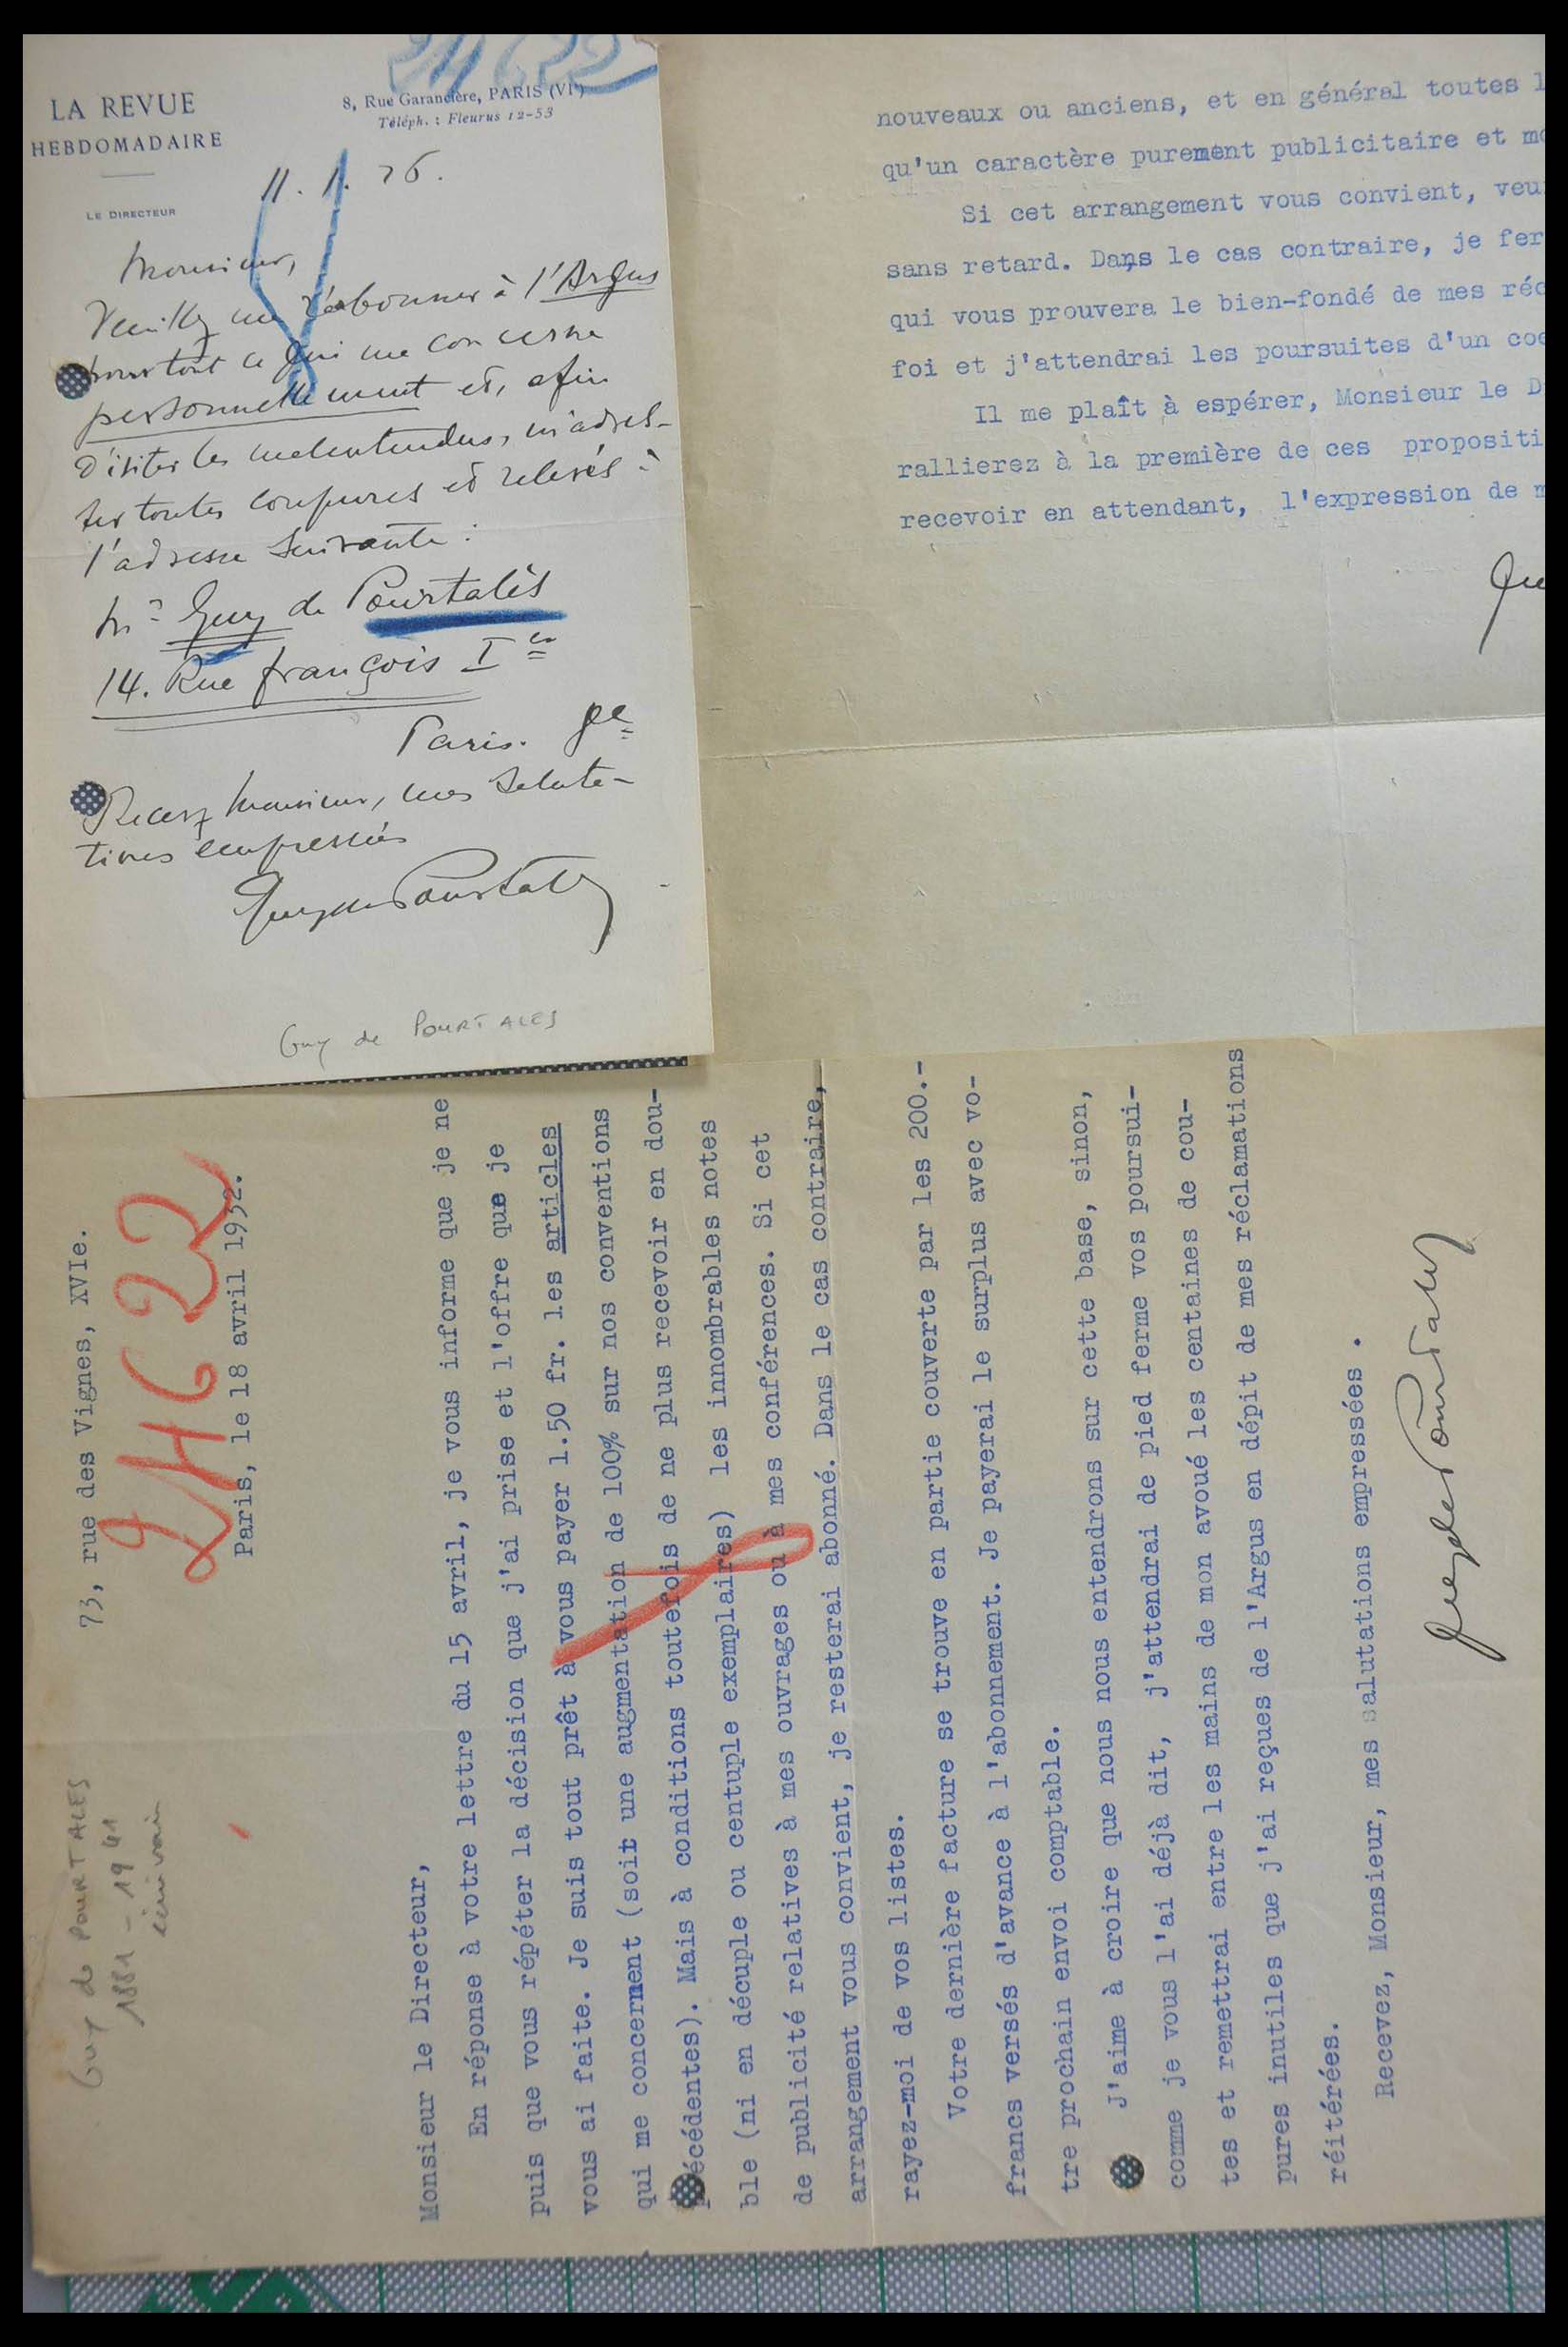 24622
LA REVUE
HEBDOMADAIRE
8, Rue Garancière, PARIS (VIe)
Téléph. : Fleurus 12-53
LE DIRECTEUR
11. 1. 26.
Monsieur,
Veuillez me réabonner à l'Argus
pour tout ce qui me concerne
personnellement et, afin
d'éviter les malentendus, m'adres-
ser toutes coupures et relevés à
l'adresse suivante :
Mr Guy de Pourtalès
14. Rue François Ier
Paris. 8e
Recevez Monsieur, mes saluta-
tions empressées
Guy de Pourtalès
Guy de POURTALES
nouveaux ou anciens, et en général toutes l
qu'un caractère purement publicitaire et mo
Si cet arrangement vous convient, veu
sans retard. Dans le cas contraire, je fer
qui vous prouvera le bien-fondé de mes réc
foi et j'attendrai les poursuites d'un coe
Il me plaît à espérer, Monsieur le D
rallierez à la première de ces propositi
recevoir en attendant, l'expression de m
Gu
Guy de POURTALES
1881 - 1941
écrivain
73, rue des Vignes, XVIe.
24622
Paris, le 18 avril 1932.
Monsieur le Directeur,
En réponse à votre lettre du 15 avril, je vous informe que je ne
puis que vous répéter la décision que j'ai prise et l'offre que je
vous ai faite. Je suis tout prêt à vous payer 1.50 fr. les articles
qui me concernent (soit une augmentation de 100% sur nos conventions
précédentes). Mais à conditions toutefois de ne plus recevoir en dou-
ble (ni en décuple ou centuple exemplaires) les innombrables notes
de publicité relatives à mes ouvrages ou à mes conférences. Si cet
arrangement vous convient, je resterai abonné. Dans le cas contraire,
rayez-moi de vos listes.
Votre dernière facture se trouve en partie couverte par les 200.-
francs versés d'avance à l'abonnement. Je payerai le surplus avec vo-
tre prochain envoi comptable.
J'aime à croire que nous nous entendrons sur cette base, sinon,
comme je vous l'ai déjà dit, j'attendrai de pied ferme vos poursui-
tes et remettrai entre les mains de mon avoué les centaines de cou-
pures inutiles que j'ai reçues de l'Argus en dépit de mes réclamations
réitérées.
Recevez, Monsieur, mes salutations empressées .
Guy de Pourtalès